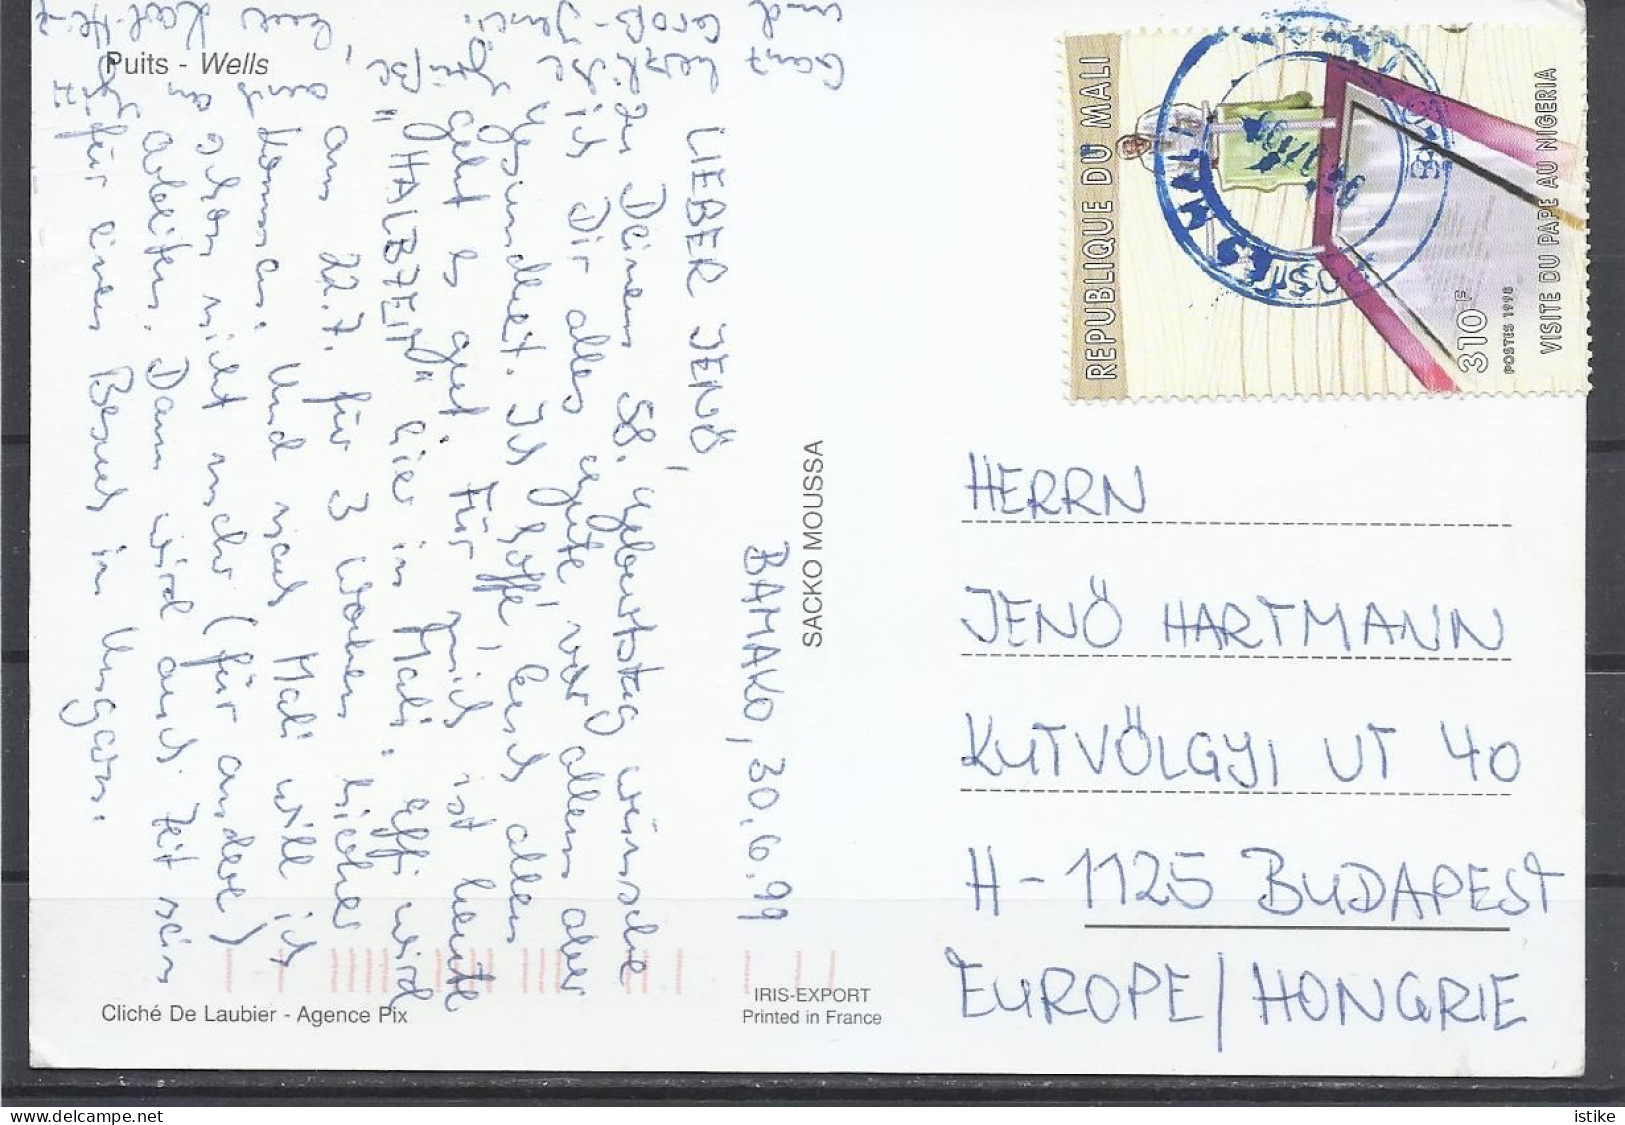 Puits - Wells
BAMAKO, 30.6.99
LIEBER JENÖ,
zu Deinem 58. Geburtstag wünsche
ich Dir alles Gute vor allem aber
Gesundheit. Ich hoffe, Euch allen
geht es gut. Für mich ist heute
"HALBZEIT" hier in Mali. Effi wird
am 22.7. für 3 Wochen hieher
kommen. Und nach Mali will ich
schon nicht mehr (für andere)
arbeiten. Dann wird auch Zeit sein
für einen Besuch in Ungarn.
Ganz herzliche Grüße,
und
Cliché De Laubier - Agence Pix
SACKO MOUSSA
IRIS-EXPORT
Printed in France
REPUBLIQUE DU MALI
310F
POSTES 1998
VISITE DU PAPE AU NIGERIA
POSTES MALI
HERRN
JENÖ HARTMANN
KUTVÖLGYI UT 40
H-1125 BUDAPEST
EUROPE/HONGRIE
istike